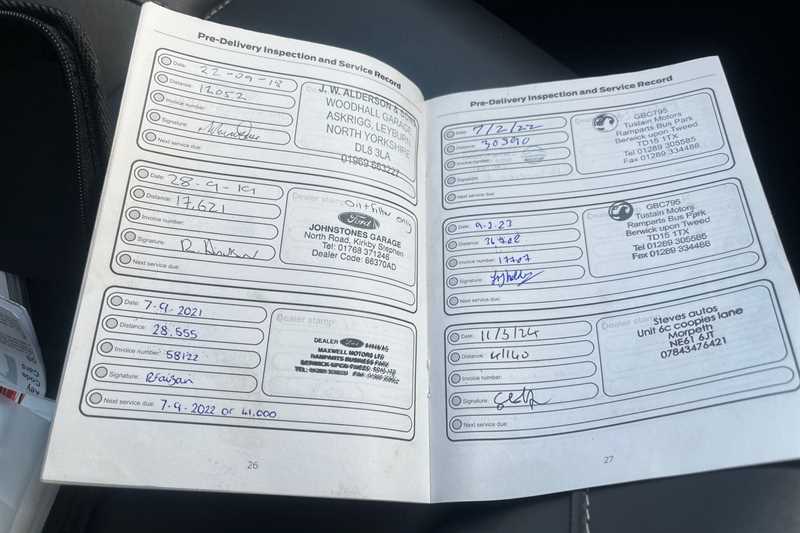 Pre-Delivery Inspection and Service Record
Date: 22-09-18
Distance: 12052
Invoice number:
Signature:
Next service due:
J. W. ALDERSON &
WOODHALL GARAGE
ASKRIGG, LEYBURN
NORTH YORKSHIRE
DL8 3LA
01969 663227
Date: 28-9-19
Distance: 17,621
Invoice number:
Signature:
Next service due:
Dealer stamp
Oil + filter only
Ford
JOHNSTONES GARAGE
North Road, Kirkby Stephen
Tel: 01768 371246
Dealer Code: 66370AD
Date: 7-9-2021
Distance: 28,555
Invoice number: 58122
Signature:
Next service due: 7-9-2022 or 41,000
Dealer stamp
DEALER Ford
MAXWELL MOTORS LTD
RAMPARTS BUSINESS PARK
BERWICK-UPON-TWEED
26
Pre-Delivery Inspection and Service Record
Date: 7/2/22
Distance: 30590
Invoice number:
Signature:
Next service due:
GBC795
Tustain Motors
Ramparts Bus Park
Berwick upon Tweed
TD15 1TX
Tel 01289 305585
Fax 01289 334486
Date: 9.2.23
Distance:
Invoice number:
Signature:
Next service due:
GBC795
Tustain Motors
Ramparts Bus Park
Berwick upon Tweed
TD15 1TX
Tel 01289 305585
Fax 01289 334486
Date: 11/3/24
Distance: 41140
Invoice number:
Signature:
Next service due:
Steves autos
Unit 6c coopies lane
Morpeth
NE61 6JT
07843476421
27